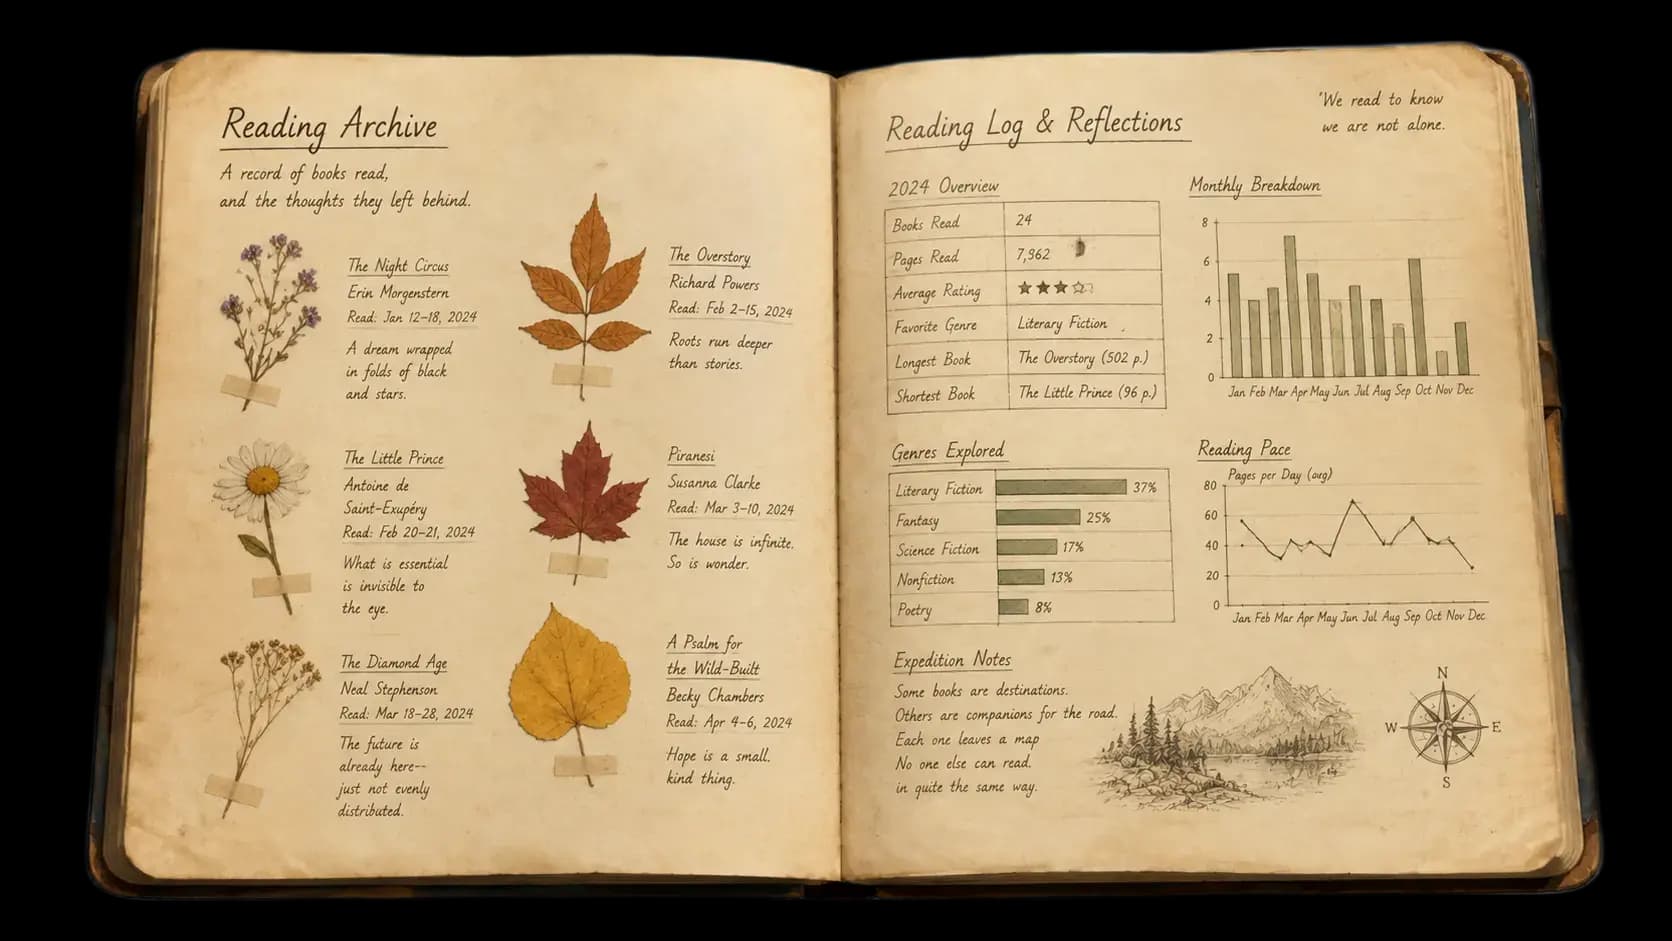 Reading Archive
A record of books read,
and the thoughts they left behind.
The Night Circus
Erin Morgenstern
Read: Jan 12–18, 2024
A dream wrapped
in folds of black
and stars.
The Little Prince
Antoine de
Saint-Exupéry
Read: Feb 20–21, 2024
What is essential
is invisible to
the eye.
The Diamond Age
Neal Stephenson
Read: Mar 18–28, 2024
The future is
already here--
just not evenly
distributed.
The Overstory
Richard Powers
Read: Feb 2–15, 2024
Roots run deeper
than stories.
Piranesi
Susanna Clarke
Read: Mar 3–10, 2024
The house is infinite.
So is wonder.
A Psalm for
the Wild-Built
Becky Chambers
Read: Apr 4–6, 2024
Hope is a small.
kind thing.
Reading Log & Reflections
'We read to know
we are not alone.
2024 Overview
Books Read 24
Pages Read 7,962
Average Rating ★★★☆
Favorite Genre Literary Fiction
Longest Book The Overstory (502 p.)
Shortest Book The Little Prince (96 p.)
Monthly Breakdown
8
6
4
2
0
Jan Feb Mar Apr May Jun Jul Aug Sep Oct Nov Dec
Genres Explored
Literary Fiction 37%
Fantasy 25%
Science Fiction 17%
Nonfiction 13%
Poetry 8%
Reading Pace
Pages per Day (avg)
80
60
40
20
0
Jan Feb Mar Apr May Jun Jul Aug Sep Oct Nov Dec
Expedition Notes
Some books are destinations.
Others are companions for the road.
Each one leaves a map
No one else can read.
in quite the same way.
N
W E
S